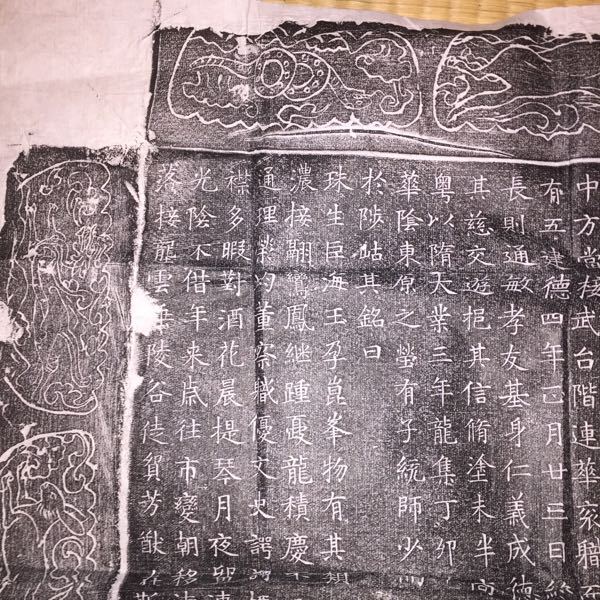 中方尚核武台階連華袞職
有五建德四年正月廿三日終
長則通敏孝友基身仁義成德
其慈交遊挹其信脩塗未半
粤以隋大業三年龍集丁卯
華陰東原之塋有子統師少
於陟岵其銘曰
珠生巨海玉孕崑峯物有其
濃接翮鸞鳳継踵夔龍積慶
通理禁汋董察職優文史諤
襟多暇對酒花晨提琴月夜
光陰不借年来歳往市變朝移
落接龍雲垂陵谷徒貿芳猷在斯